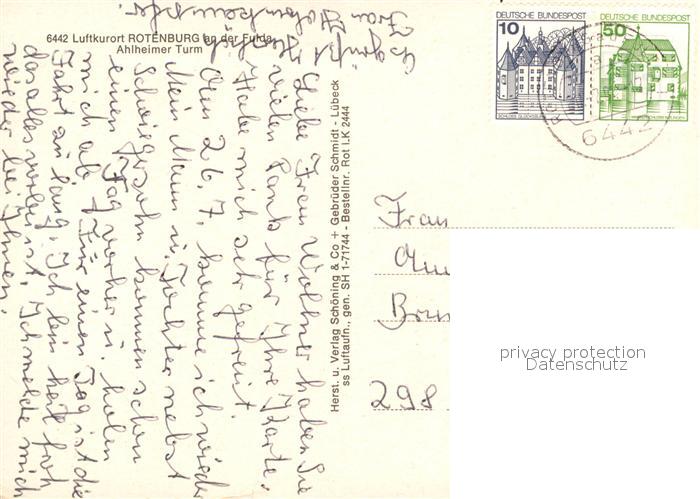 6442 Luftkurort ROTENBURG an der Fulda
Ahlheimer Turm
DEUTSCHE BUNDESPOST
10
SCHLOSS GLÜCKSBURG
DEUTSCHE BUNDESPOST
50
6442
Liebe Frau Wollner haben Sie
vielen Dank für Ihre Karte.
Habe mich sehr gefreut.
Am 26.7. komme ich wieder
Mein Mann u. Tochter nebst
Schwiegersohn kommen schon
einen Tag vorher u. holen
mich ab. Für einen Tag ist die
Fahrt zu lang. Ich bin heil froh
das alles vorbei ist. Ich melde mich
wieder bei Ihnen.
Es grüßt
Frau
Herst. u. Verlag Schöning & Co + Gebrüder Schmidt - Lübeck
ss Luftaufn., gen. SH 1-71744 - Bestellnr. Rot i.K 2444
Frau
298
privacy protection
Datenschutz